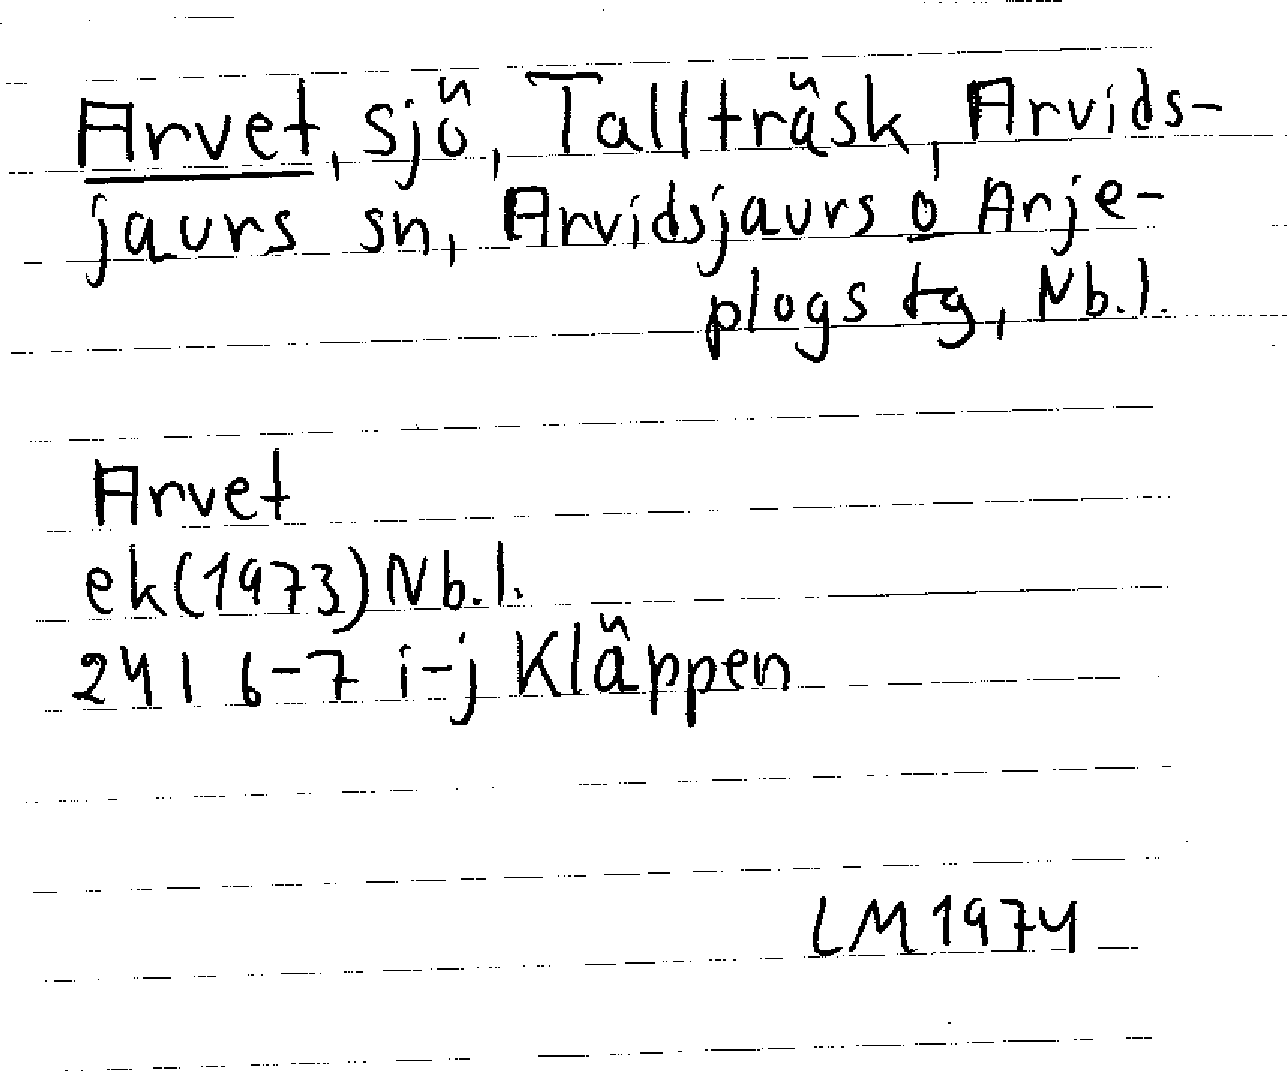 Arvet, sjö, Tallträsk, Arvids-
jaurs sn, Arvidsjaurs o Arje-
plogs tg, Nb.l.
Arvet
ek(1973) Nb.l.
24I 6-7 i-j Kläppen
LM 1974